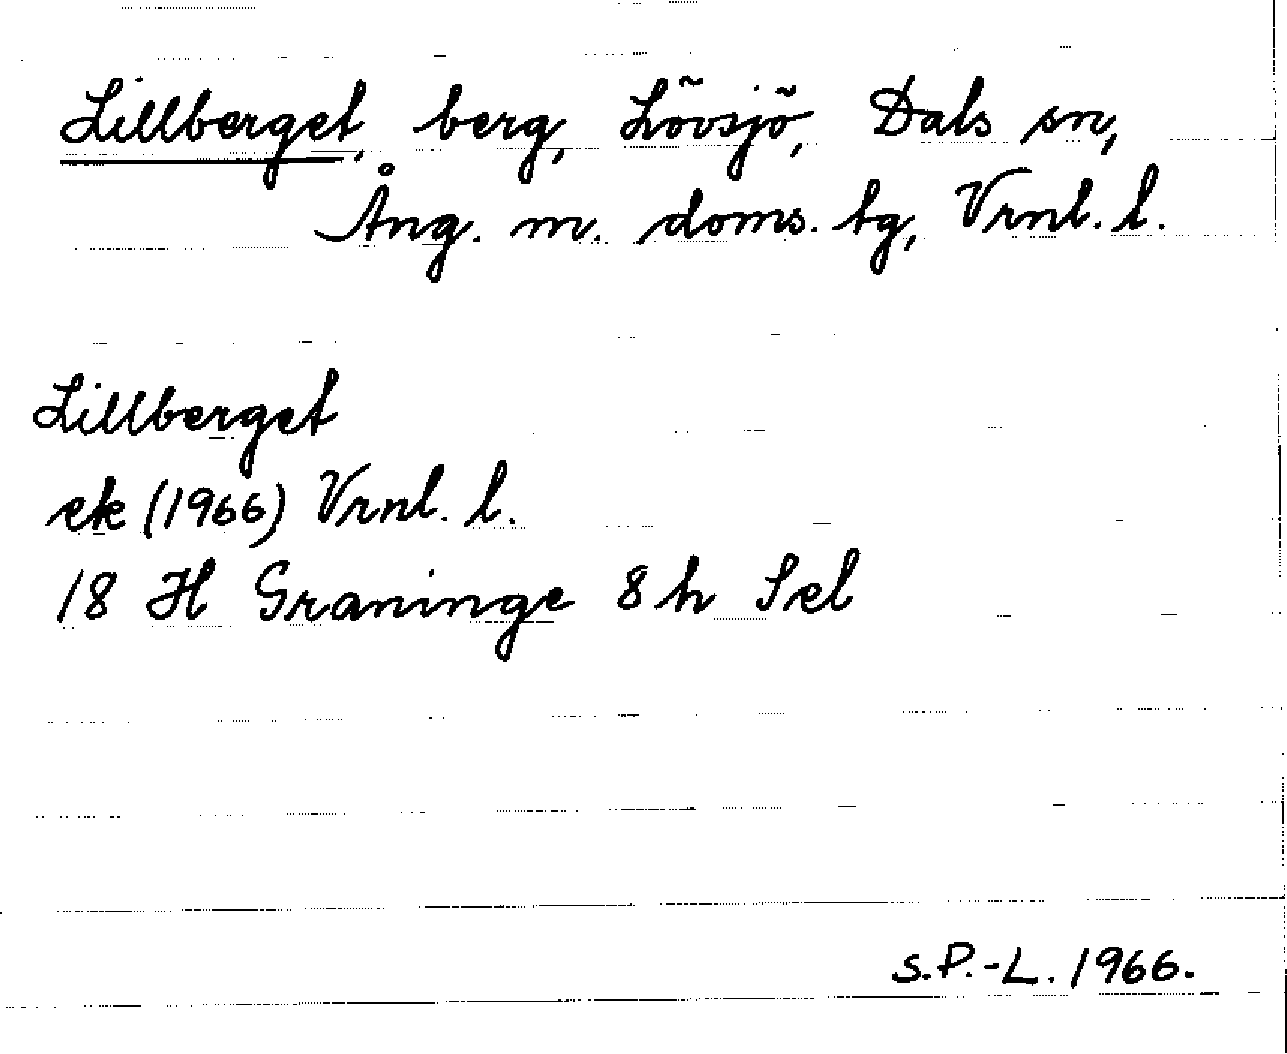 Lillberget, berg, Lövsjö, Dals sn,
Ång. m. doms. tg, Vrnl. l.
Lillberget
ek (1966) Vrnl. l.
18 H Graninge 8 h Sel
S.P.-L. 1966.